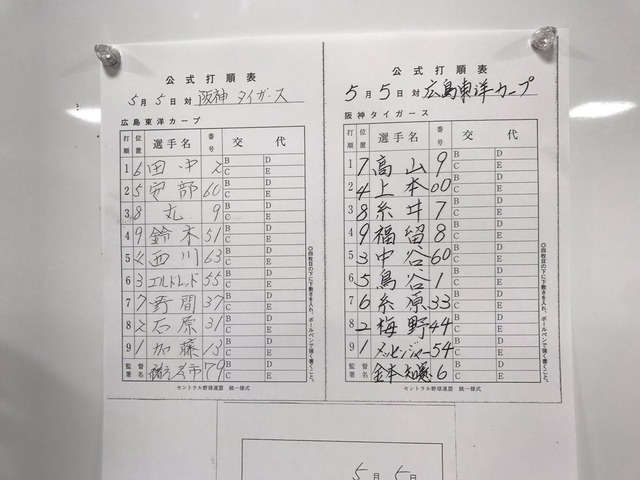 公式打順表
5月5日 対 阪神タイガース
広島東洋カープ
打順 位置 選手名 番号 交代
1 6 田中 2 B D C E
2 5 安部 60 B D C E
3 8 丸 9 B D C E
4 9 鈴木 51 B D C E
5 4 西川 63 B D C E
6 3 エルドレッド 55 B D C E
7 7 野間 37 B D C E
8 2 石原 31 B D C E
9 1 加藤 13 B D C E
監督 督名 緒方孝市 79 C E
セントラル野球連盟 統一様式
◎四枚目の下に下敷きを入れ、ボールペンで強く書くこと。
公式打順表
5月5日 対 広島東洋カープ
阪神タイガース
打順 位置 選手名 番号 交代
1 7 高山 9 B D C E
2 4 上本 00 B D C E
3 8 糸井 7 B D C E
4 9 福留 8 B D C E
5 3 中谷 60 B D C E
6 5 鳥谷 1 B D C E
7 6 糸原 33 B D C E
8 2 梅野 44 B D C E
9 1 メッセンジャー 54 B D C E
監督 督名 金本知憲 6 C E
セントラル野球連盟 統一様式
◎四枚目の下に下敷きを入れ、ボールペンで強く書くこと。
5月5日